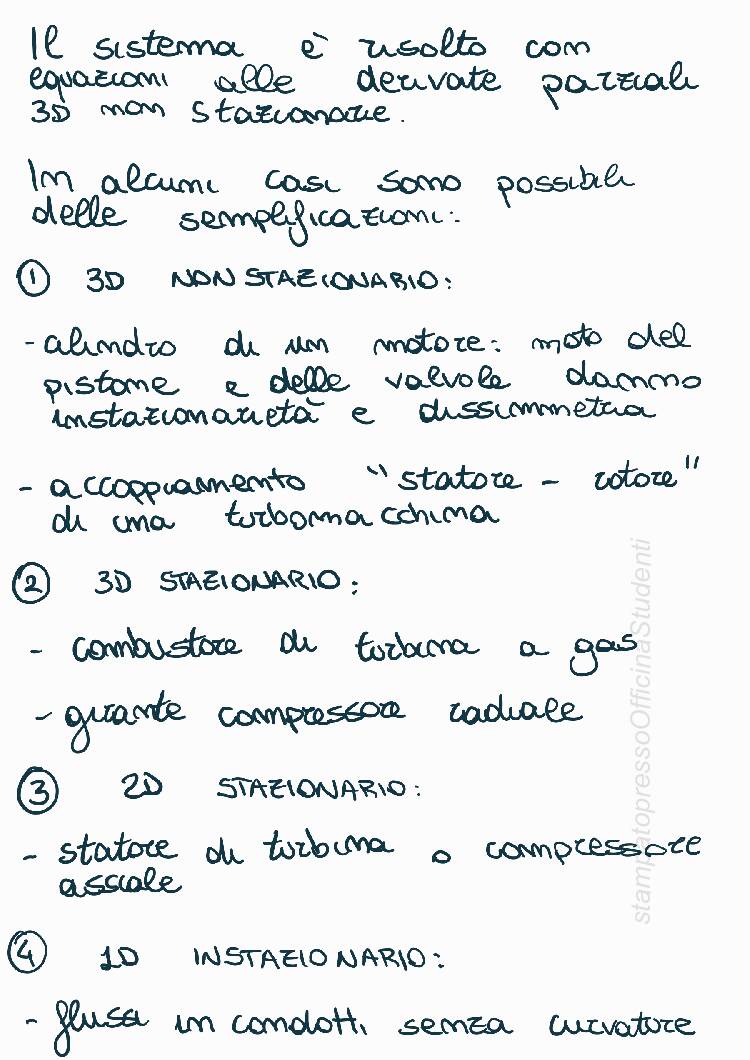 Il sistema è risolto con
equazioni alle derivate parziali
3D non stazionarie.
In alcuni casi sono possibili
delle semplificazioni:
① 3D NON STAZIONARIO:
- cilindro di un motore: moto del
pistone e delle valvole danno
instazionarietà e dissimmetria
- accoppiamento "statore - rotore"
di una turbomacchina
② 3D STAZIONARIO:
- combustore di turbina a gas
- girante compressore radiale
③ 2D STAZIONARIO:
- statore di turbina o compressore
assiale
④ 1D INSTAZIONARIO:
- flussi in condotti senza curvature
stampatopressoOfficinaStudenti